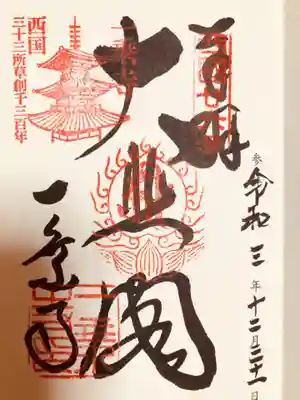 参 令和三年十二月三十一日
奉拝
大悲閣
一乗寺
西国
三十三所草創千三百年